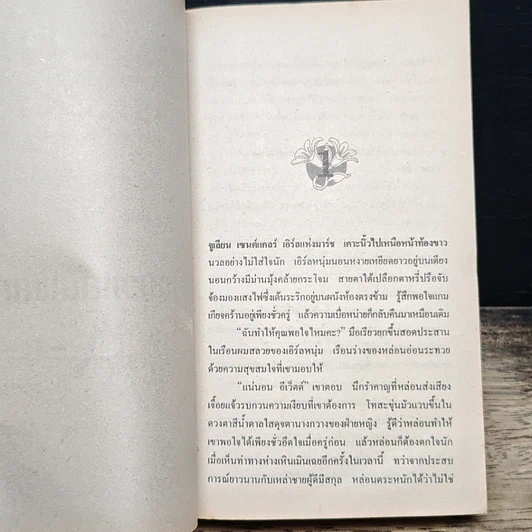 1
จูเลียน เซนต์แคลร์ เอิร์ลแห่งมาร์ช เคาะนิ้วไปเหนือหน้าท้องขาว
นวลอย่างไม่ใส่ใจนัก เอิร์ลหนุ่มนอนหงายเหยียดยาวอยู่บนเตียง
นอนกว้างมีม่านมุ้งคล้ายกระโจม สายตาใต้เปลือกตาหรี่ปรือจับ
จ้องมองแสงไฟซึ่งเต้นระริกอยู่บนผนังห้องตรงข้าม รู้สึกพอใจแกม
เกียจคร้านอยู่เพียงชั่วครู่ แล้วความเบื่อหน่ายก็กลับคืนมาเหมือนเดิม
“ฉันทำให้คุณพอใจไหมคะ?” มือเรียวยกขึ้นสอดประสาน
ในเรือนผมสลวยของเอิร์ลหนุ่ม เรือนร่างของหล่อนอ่อนระทวย
ด้วยความสุขสมใจที่เขามอบให้
“แน่นอน อีเว็ตต์” เขาตอบ นึกรำคาญที่หล่อนส่งเสียง
เจื้อยแจ้วรบกวนความเงียบที่เขาต้องการ โทสะขุ่นมัวแวบขึ้นใน
ดวงตาสีน้ำตาลใสดุจตานางกวางของฝ่ายหญิง รู้ดีว่าหล่อนทำให้
เขาพอใจได้เพียงชั่วอึดใจเมื่อครู่ก่อน แล้วหล่อนก็ต้องตกใจนัก
เมื่อเห็นท่าทางห่างเหินเมินเฉยอีกครั้งในเวลานี้ ทว่าจากประสบ
การณ์ยาวนานกับเหล่าชายผู้ดีมีสกุล หล่อนตระหนักได้ว่าไม่ใช่